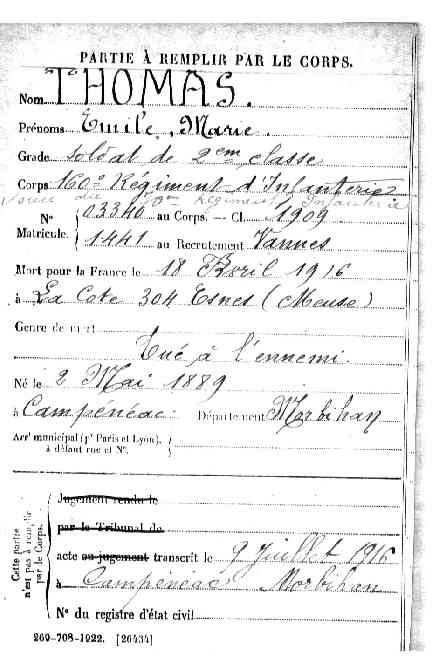 PARTIE À REMPLIR PAR LE CORPS.
Nom THOMAS.
Prénoms Emile, Marie.
Grade soldat de 2em classe
Corps 160e Régiment d'Infanterie
Régiment Infanterie
N° 03340 au Corps. — Cl. 1909
Matricule. 1441 au Recrutement Vannes
Mort pour la France le 18 Avril 1916
à La Cote 304 Esnes (Meuse)
Genre de mort
Tué à l'ennemi.
Né le 2 Mai 1889
à Campénéac Département Morbihan
Arrt municipal (pr Paris et Lyon),
à défaut rue et N°.
Cette partie
n'est pas à remplir
par le Corps.
Jugement rendu le
par le Tribunal de
acte ou jugement transcrit le 9 Juillet 1916
à Campénéac Morbihan
N° du registre d'état civil
269-708-1922. [26434]